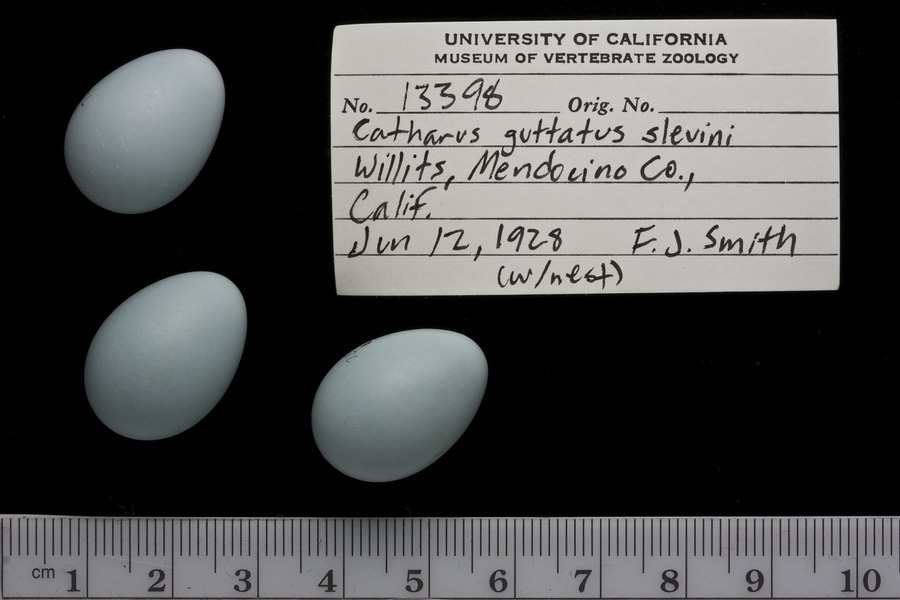 UNIVERSITY OF CALIFORNIA
MUSEUM OF VERTEBRATE ZOOLOGY
No. 13398 Orig. No.
Catharus guttatus slevini
Willits, Mendocino Co.,
Calif.
Jun 12, 1928 F. J. Smith
(w/nest)
cm 1 2 3 4 5 6 7 8 9 10